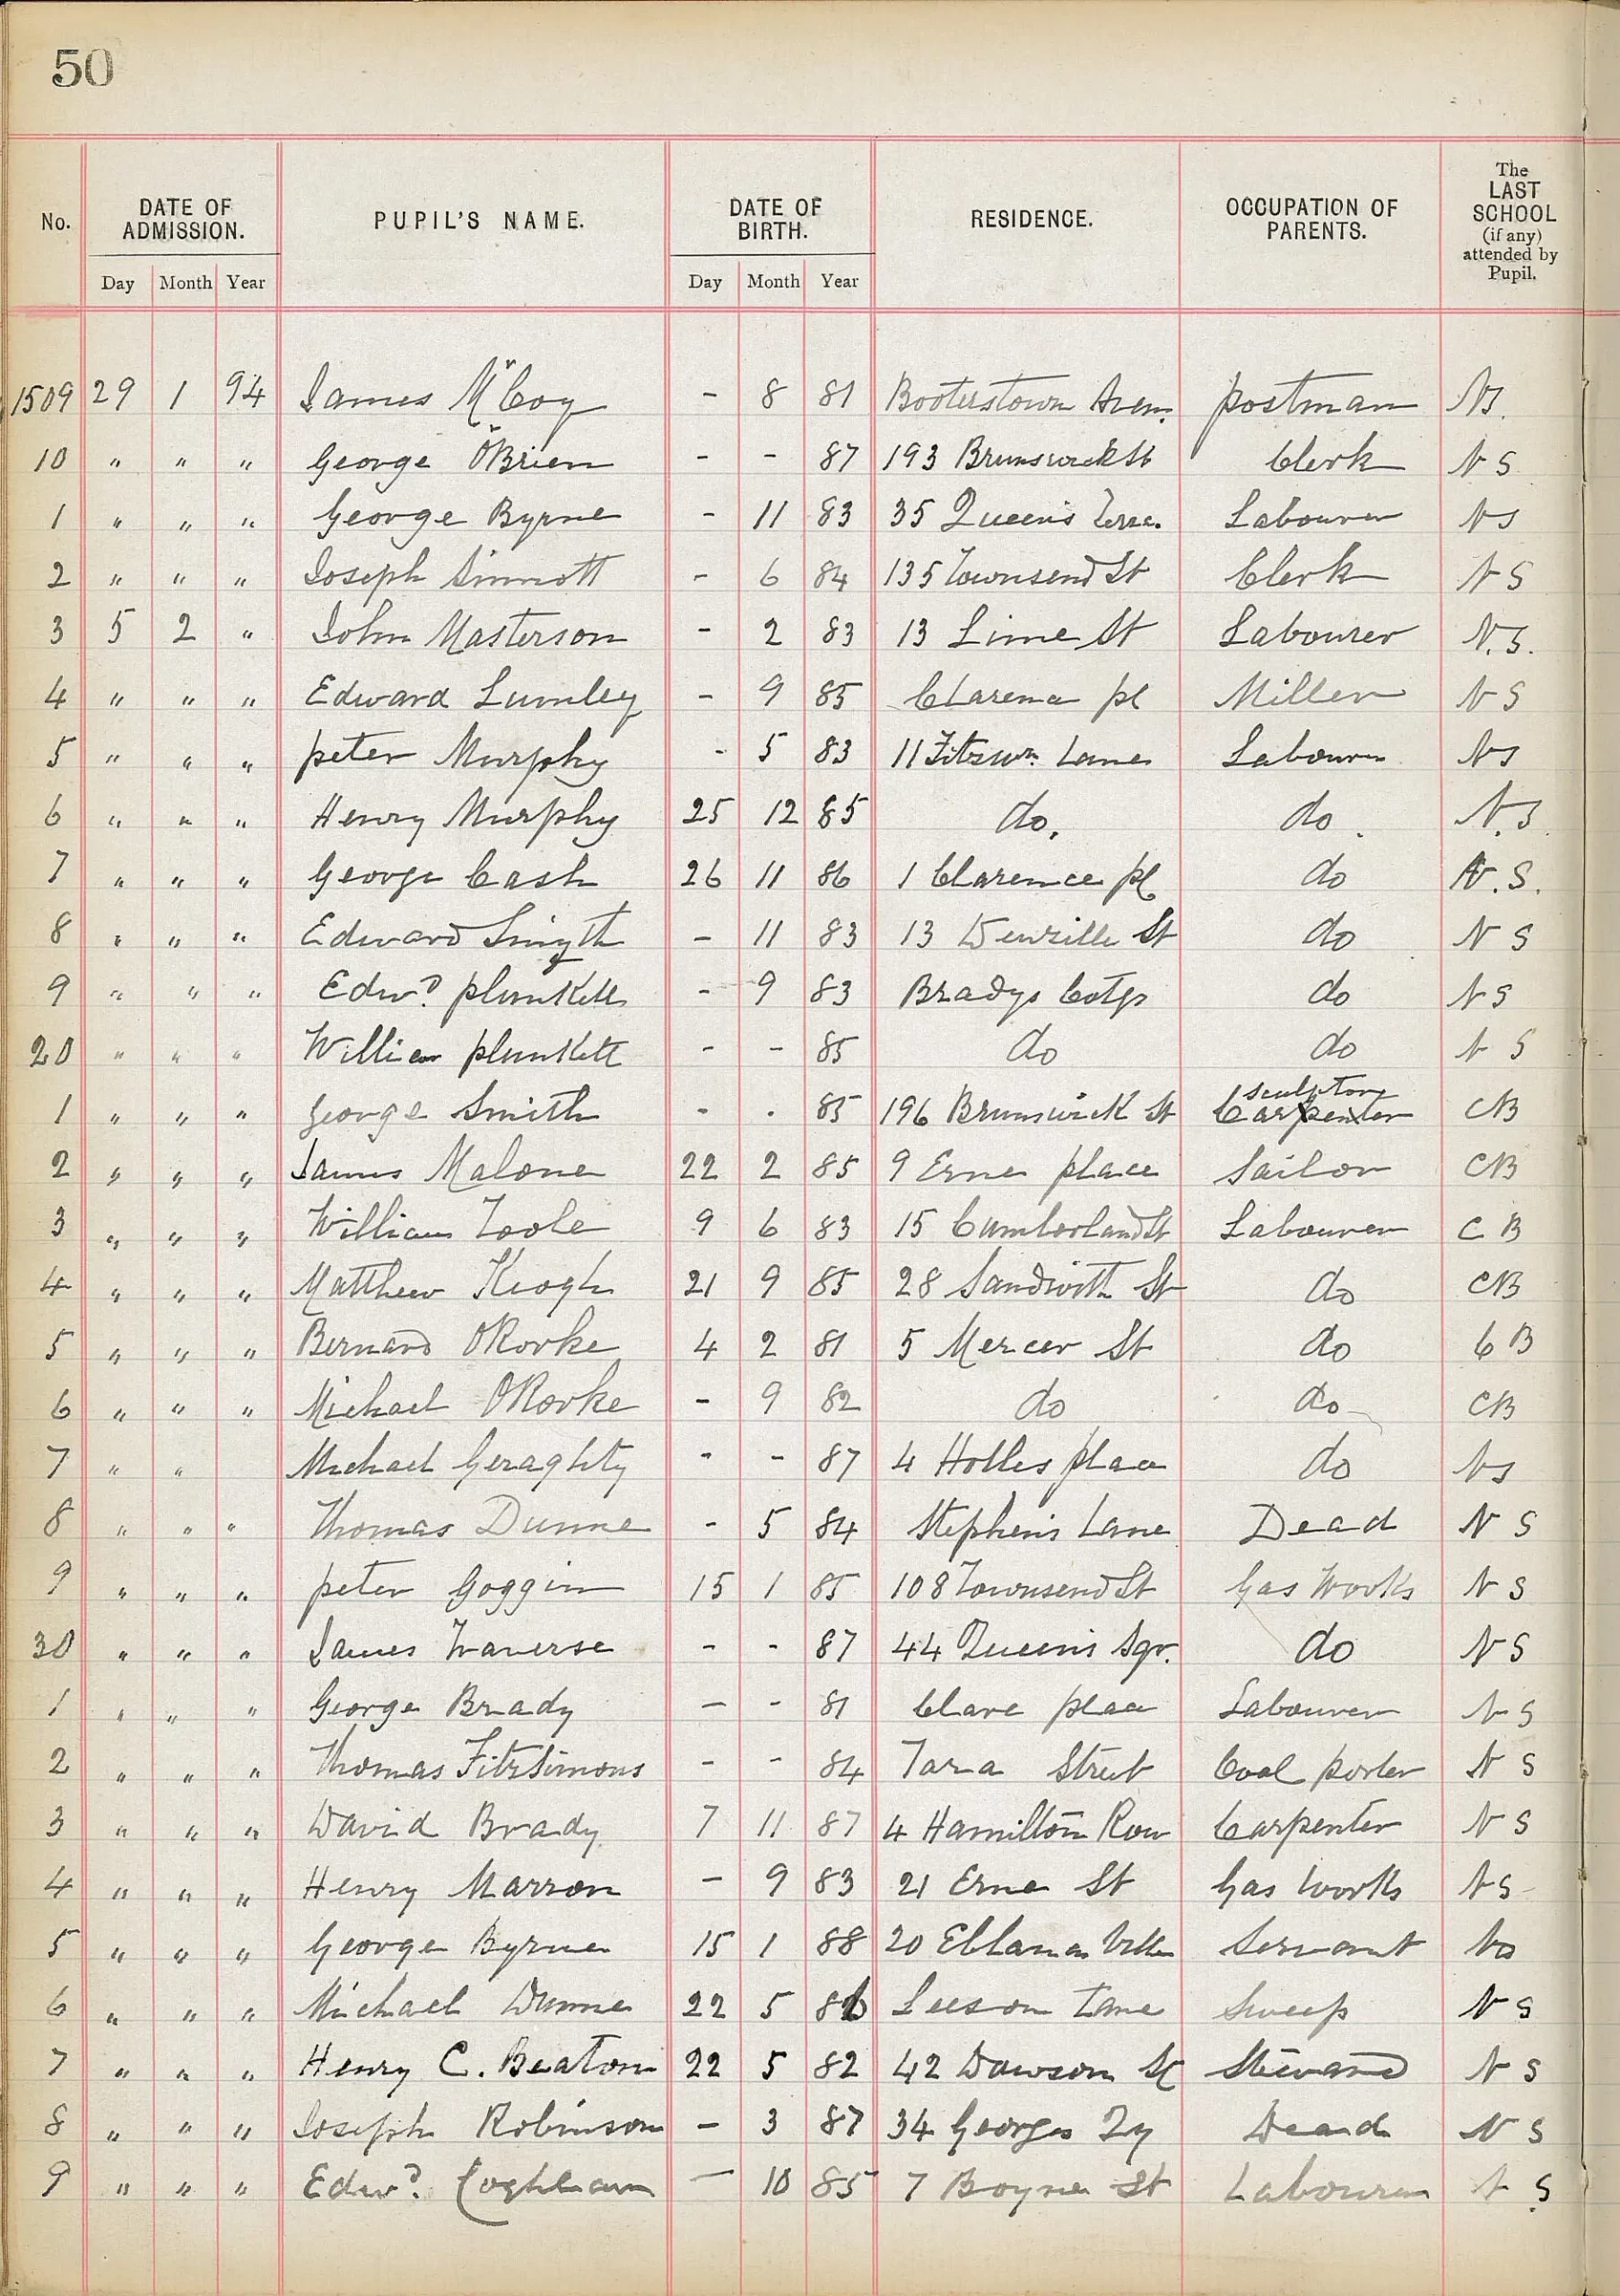 50
No. DATE OF ADMISSION. PUPIL'S NAME. DATE OF BIRTH. RESIDENCE. OCCUPATION OF PARENTS. The LAST SCHOOL (if any) attended by Pupil.
Day Month Year Day Month Year
1509 29 1 94 James McCoy - 8 81 Booterstown Aven. postman NS.
10 " " " George O'Brien - - 87 193 Brunswick St Clerk N S
1 " " " George Byrne - 11 83 35 Queen's Terrc. Labourer NS
2 " " " Joseph Sinnott - 6 84 135 Townsend St Clerk N S
3 5 2 " John Masterson - 2 83 13 Lime St Labourer N.S.
4 " " " Edward Lumley - 9 85 Clarence pl Miller N S
5 " " " peter Murphy - 5 83 11 Fitzwm. Lane Labourer NS
6 " " " Henry Murphy 25 12 85 do. do. N.S.
7 " " " George Cash 26 11 86 1 Clarence pl do N.S.
8 " " " Edward Smyth - 11 83 13 Denzille St do N S
9 " " " Edwd. plunkett - 9 83 Bradys Cotgs do N S
20 " " " William plunkett - - 85 do do N S
sculptor
1 " " " George Smith - . 85 196 Brunswick St Carpenter CB
2 " " " James Malone 22 2 85 9 Erne place Sailor CB
3 " " " William Toole 9 6 83 15 Cumberland St Labourer C B
4 " " " Matthew Keogh 21 9 85 28 Sandwith St do CB
5 " " " Bernard ORorke 4 2 81 5 Mercer St do C B
6 " " " Michael ORorke - 9 82 do do CB
7 " " Michael Geraghty - - 87 4 Holles place do NS
8 " " " Thomas Dunne - 5 84 Stephen's Lane Dead N S
9 " " " peter Goggin 15 1 85 108 Townsend St Gas Works N S
30 " " " James Traverse - - 87 44 Queen's Sqr. do N S
1 " " " George Brady - - 81 Clare place Labourer N S
2 " " " Thomas Fitzsimons - - 84 Tara Street Coal porter N S
3 " " " David Brady 7 11 87 4 Hamilton Row Carpenter N S
4 " " " Henry Marron - 9 83 21 Erne St Gas Works N S
5 " " " George Byrne 15 1 88 20 Eblana Servant NS
6 " " " Michael Dunne 22 5 Leeson Lane Sweep N S
7 " " " Henry C. Beaton 22 5 82 42 Dawson St Steward N S
8 " " " Joseph Robinson - 3 87 34 Georges Qy Dead N S
9 " " " Edwd. Coghlan - 10 85 7 Boyne St Labourer N S